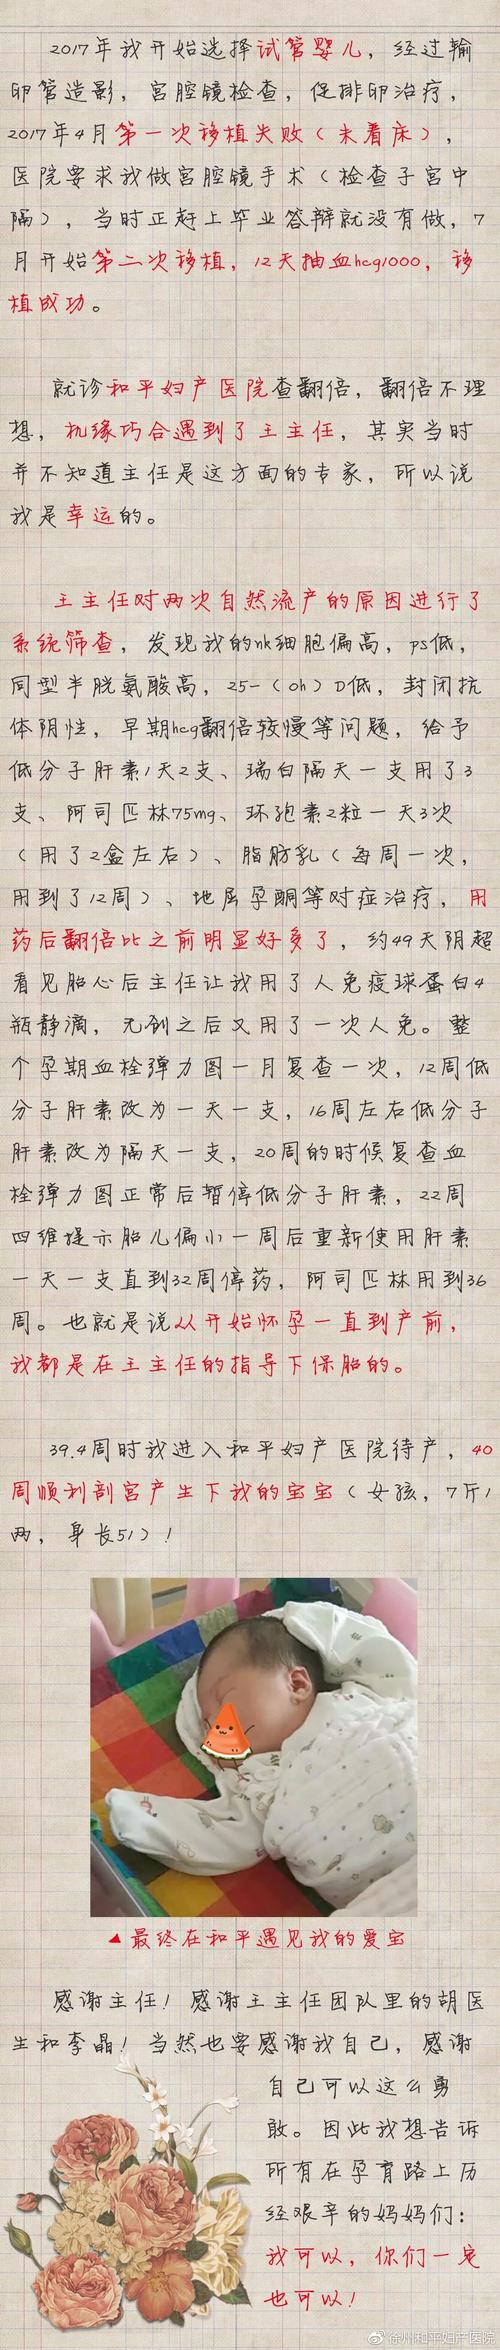 2017年我开始选择试管婴儿，经过输
卵管造影，宫腔镜检查，促排卵治疗，
2017年4月第一次移植失败（未着床），
医院要求我做宫腔镜手术（检查子宫中
隔），当时正赶上毕业答辩就没有做，7
月开始第二次移植，12天抽血hcg1000，移
植成功。
就诊和平妇产医院查翻倍，翻倍不理
想，机缘巧合遇到了王主任，其实当时
并不知道主任是这方面的专家，所以说
我是幸运的。
王主任对两次自然流产的原因进行了
系统筛查，发现我的nk细胞偏高，ps低，
同型半胱氨酸高，25-（oh）D低，封闭抗
体阴性，早期hcg翻倍较慢等问题，给予
低分子肝素1天2支、瑞白隔天一支用了3
支、阿司匹林75mg、环孢素2粒一天3次
（用了2盒左右）、脂肪乳（每周一次，
用到了12周）、地屈孕酮等对症治疗，用
药后翻倍比之前明显好多了，约49天阴超
看见胎心后主任让我用了人免疫球蛋白4
瓶静滴，无创之后又用了一次人免。整
个孕期血栓弹力图一月复查一次，12周低
分子肝素改为一天一支，16周左右低分子
肝素改为隔天一支，20周的时候复查血
栓弹力图正常后暂停低分子肝素，22周
四维提示胎儿偏小一周后重新使用肝素
一天一支直到32周停药，阿司匹林用到36
周。也就是说从开始怀孕一直到产前，
我都是在王主任的指导下保胎的。
39.4周时我进入和平妇产医院待产，40
周顺利剖宫产生下我的宝宝（女孩，7斤1
两，身长51）！
▲最终在和平遇见我的爱宝
感谢主任！感谢王主任团队里的胡医
生和李晶！当然也要感谢我自己，感谢
自己可以这么勇
敢。因此我想告诉
所有在孕育路上历
经艰辛的妈妈们：
我可以，你们一定
也可以！
@徐州和平妇产医院